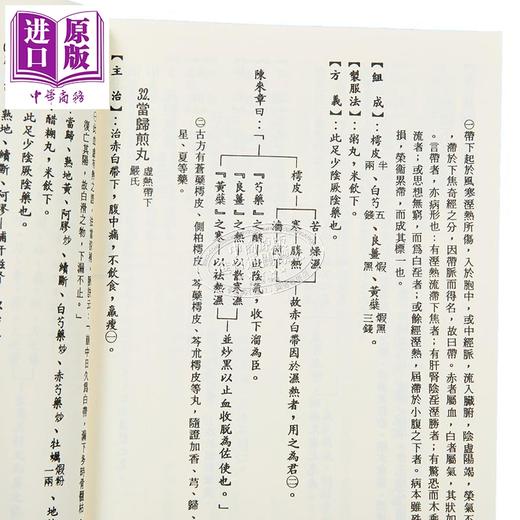 进口
中华商务
㊀帶下起於風寒溼熱所傷，入於胞中，或中經脈，流入臟腑，陰虛陽竭，榮氣不
滯於下焦奇經之分，因帶脈而得名，故曰帶。赤者屬血，白者屬氣，其狀如
言帶者，亦病形也：有溼熱流滯下焦者；有肝腎陰淫溼勝者；有驚恐而木乘
流者；或思想無窮，而為白淫者；或餘經溼熱，屈滯於小腹之下者。病本雖殊
損，榮衛累滯，而成其標一也。
【組成】：樗皮半兩、白芍五錢、良薑煅黑、黃蘗煅黑三錢。
【製服法】：粥丸，米飲下。
【方義】：此足少陰厥陰藥也。
陳來章曰：「
樗皮
苦—燥濕
寒—勝熱
澀—固下
故赤白帶因於濕熱者，用之為君㊁。
『芍藥』之酸—以斂陰氣，收下溜為臣。
『良薑』之熱—以散寒濕
『黃蘗』之寒—以祛熱濕
並炒黑以止血收脫為佐使也。」
㊁古方有蒼蘗樗皮、側柏樗皮、芩蘗樗皮、芩朮樗皮等丸，隨證加香、芎、歸、
星、夏等藥。
32.當歸煎丸 虛熱帶下 嚴氏
【主治】：治赤白帶下，腹中痛，不飲食，羸瘦㊀。
當歸、熟地黃、阿膠炒、續斷、白芍藥炒、赤芍藥炒、牡蠣煅粉一兩、地
：醋糊丸，米飲下。
：此足少陰厥陰藥也。